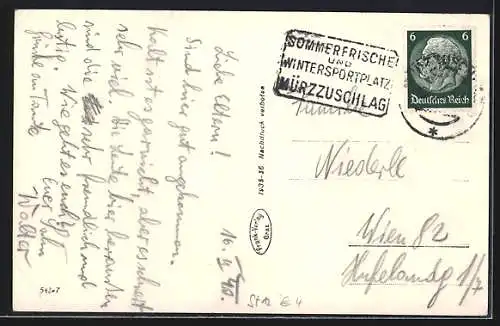 Liebe Eltern!
Sind hier gut angekommen.
Kalt ist es gar nicht, aber es schneit
sehr viel. Die Leute hier heraussen
sind die sehr freundlich und
lustig. Wie geht es euch?
Grüße an Tante
Euer Sohn
Walter
54207
16. II 40.
1935-36 Nachdruck verboten
Frank-Verlag
Graz
SOMMERFRISCHE
UND
WINTERSPORTPLATZ
MÜRZZUSCHLAG
6 6
Deutsches Reich
Familie
Niederle
Wien 82
Hufelandg 1/7
St 12 E 4